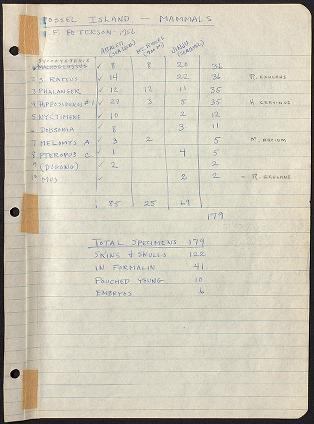 ROSSEL ISLAND — MAMMALS
F. PETERSON 1956
ABALETI (SEA LEVEL) MT ROSSEL (700 M) JINJU (SEA LEVEL)
SYCONYCTERIS
1 MACROGLOSSUS ✓ 8 8 20 36
2 R. RATTUS ✓ 14 22 36 R. EXULANS
3 PHALANGER ✓ 12 12 11 35
4 HIPPOSIDEROS #1 ✓ 3 5 35 H. CERVINUS
5 NYCTIMENE ✓ 10 2 12
6 DOBSONIA ✓ 8 3 11
7 MELOMYS A ✓ 3 2 5
8 PTEROPUS C ✓ 1 4 5
9 (DUGONG) ✓ 2 2
10 MUS ✓ 2 2 — R. EXULANS
85 25 69
179
TOTAL SPECIMENS 179
SKINS & SKULLS 122
IN FORMALIN 41
POUCHED YOUNG 10
EMBRYOS 6